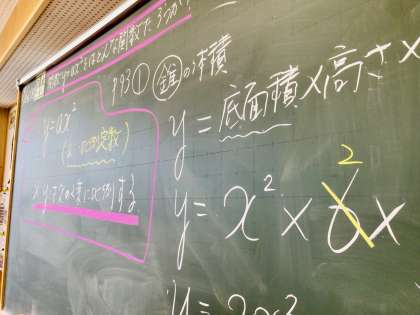 y=ax²とはどんな関数だろうか
P93① 錐の体積
y=ax²
(a…比例定数)
※ yはxの2乗に比例する
y=底面積×高さ×
y=x²×6×
2
y=2x²